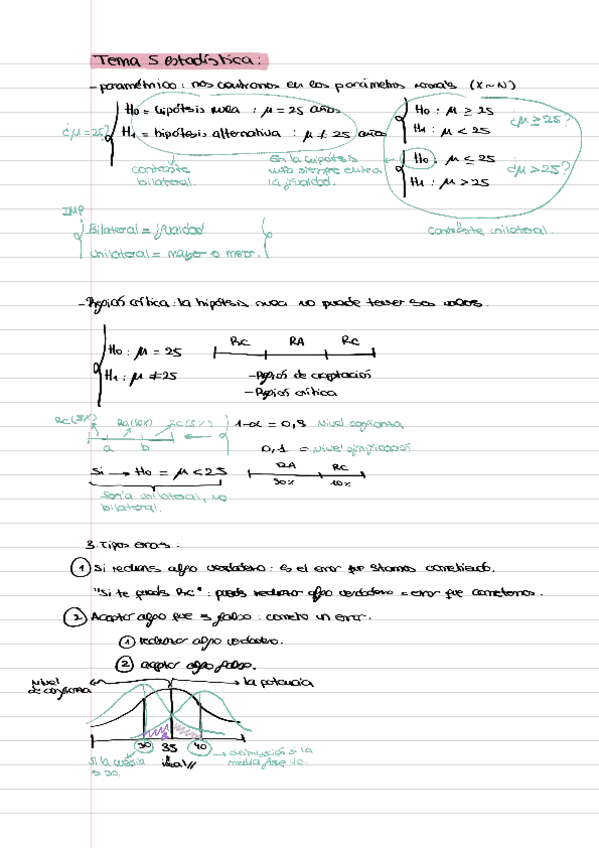 Tema 5 estadística:
- paramétrico: nos centramos en los parámetros normals (X~N)
¿μ=25?
H0 = hipótesis nula : μ = 25 años
H1 = hipótesis alternativa : μ ≠ 25 años
H0 : μ ≥ 25
H1 : μ < 25
¿μ≥25?
H0 : μ ≤ 25
H1 : μ > 25
¿μ>25?
contraste bilateral.
En la hipótesis
nula siempre entra
la igualdad.
contraste unilateral.
IMP
Bilateral = igualdad
Unilateral = mayor o menor.
- Región crítica: la hipótesis nula no puede tener esos valores.
H0 : μ = 25
H1 : μ ≠ 25
RC RA RC
- Región de aceptación
- Región crítica
RC(5%) RA(90%) RC(5%)
a b
1-α = 0,9 nivel confianza
0,1 = nivel significación
Si → H0 = μ < 25
RA RC
90% 10%
Sería unilateral, no
bilateral.
3. Tipos errores:
1 Si rechazas algo verdadero: es el error que estamos cometiendo.
"Si te quedas RC": puedes rechazar algo verdadero = error que cometemos.
2 Aceptar algo que es falso: cometo un error.
1 rechazar algo verdadero.
2 aceptar algo falso.
nivel
de confianza
la potencia
30 35 40
Si la media
es 30.
ideal//
disminución si la
media fuese 40.